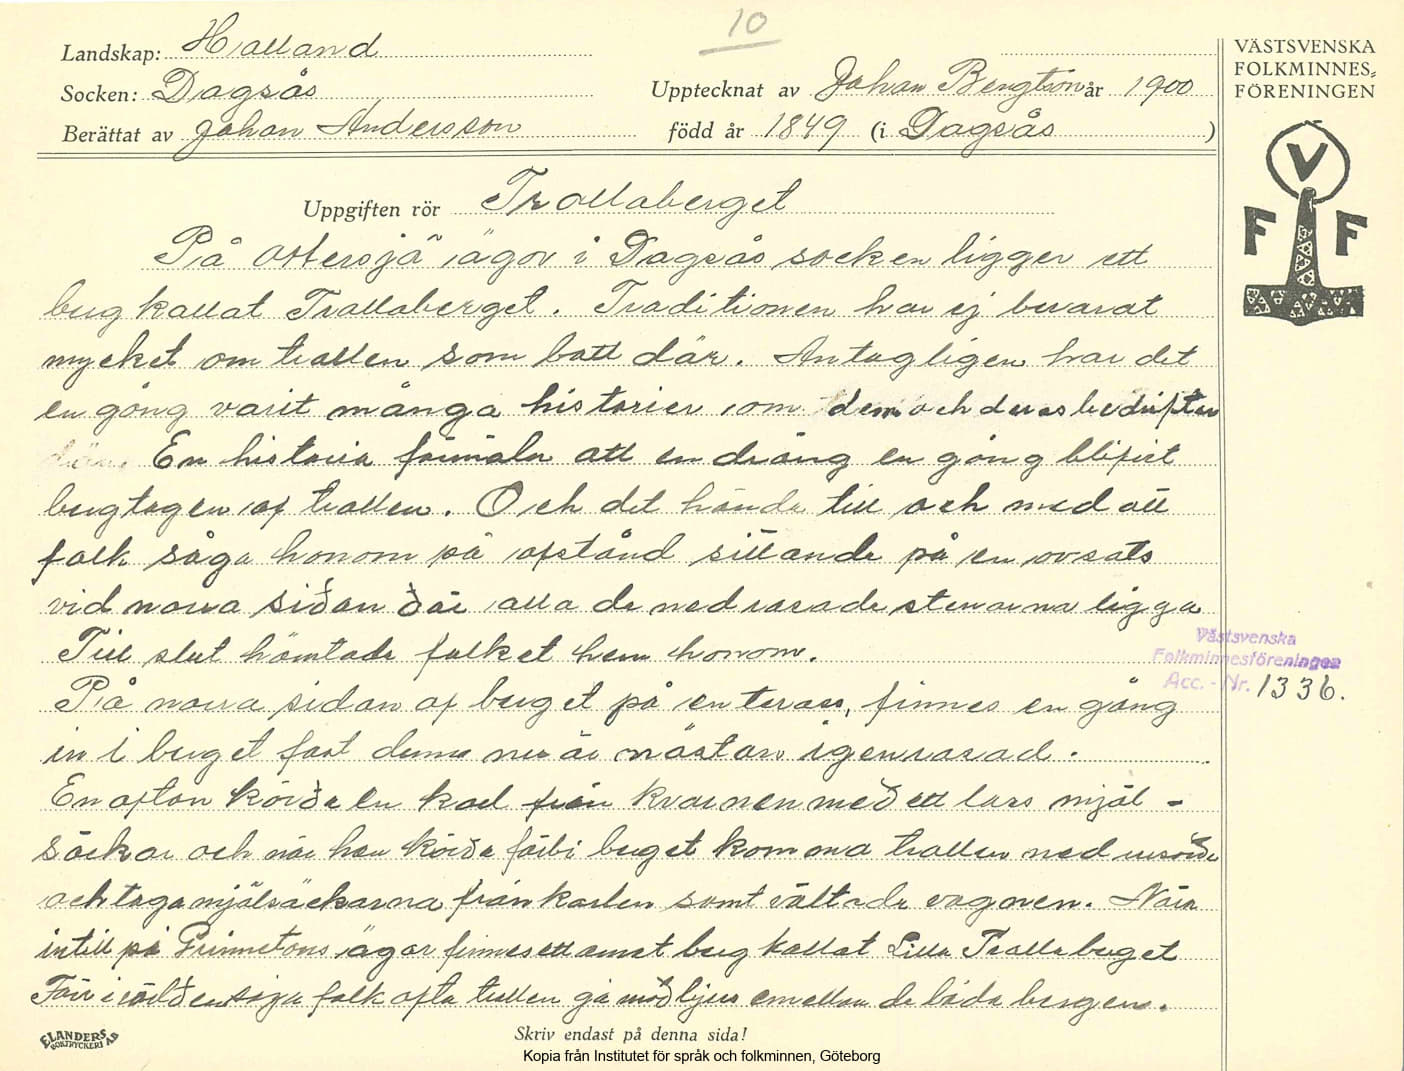 10
Landskap: Halland
Socken: Dagsås
Upptecknat av Johan Bengtson år 1900
Berättat av Johan Andersson född år 1849 (i Dagsås )
VÄSTSVENSKA
FOLKMINNES=
FÖRENINGEN
V
F F
Uppgiften rör Trollaberget
På Ottersjö ägor i Dagsås socken ligger ett
berg kallat Trollaberget. Traditionen har ej bevarat
mycket om trollen som bott där. Antagligen har det
en gång varit många historier om dem och deras bedrifter
där. En historia förmäler att en dräng en gång blifvit
bergtagen af trollen. Och det hände till och med att
folk såga honom på afstånd sittande på en avsats
vid norra sidan där alla de nedrasade stenarna ligga
Till slut hämtade folket hem honom.
På norra sidan af berget på en terass, finnes en gång
in i berget fast denna nu är nästan igenrasad.
En afton körde en karl från kvarnen med ett lass mjöl-
säckar och när han körde förbi berget komma trollen ned
och taga mjölsäckarna från karlen samt vältade vagnen. Nära
intill på Grimmetons ägor finnes ett annat berg kallat Lilla Trollaberget
Förr i världen såga folk ofta trollen gå med ljus emellan de båda bergen.
Västsvenska
Folkminnesföreningen
Acc. - Nr. 1336.
ELANDERS
BOKTRYCKERI AB
Skriv endast på denna sida!
Kopia från Institutet för språk och folkminnen, Göteborg